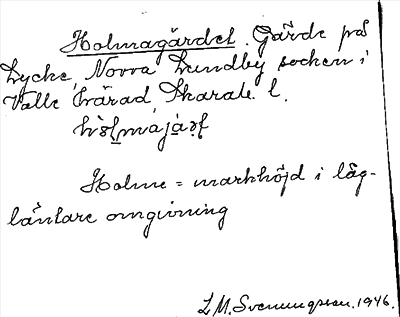 Holmagärdet. Gärde på
Lycke, Norra Lundby socken i
Valle härad, Skarab. l.
Holme = markhöjd i låg-
läntare omgivning
L. M. Svenungsson. 1946.